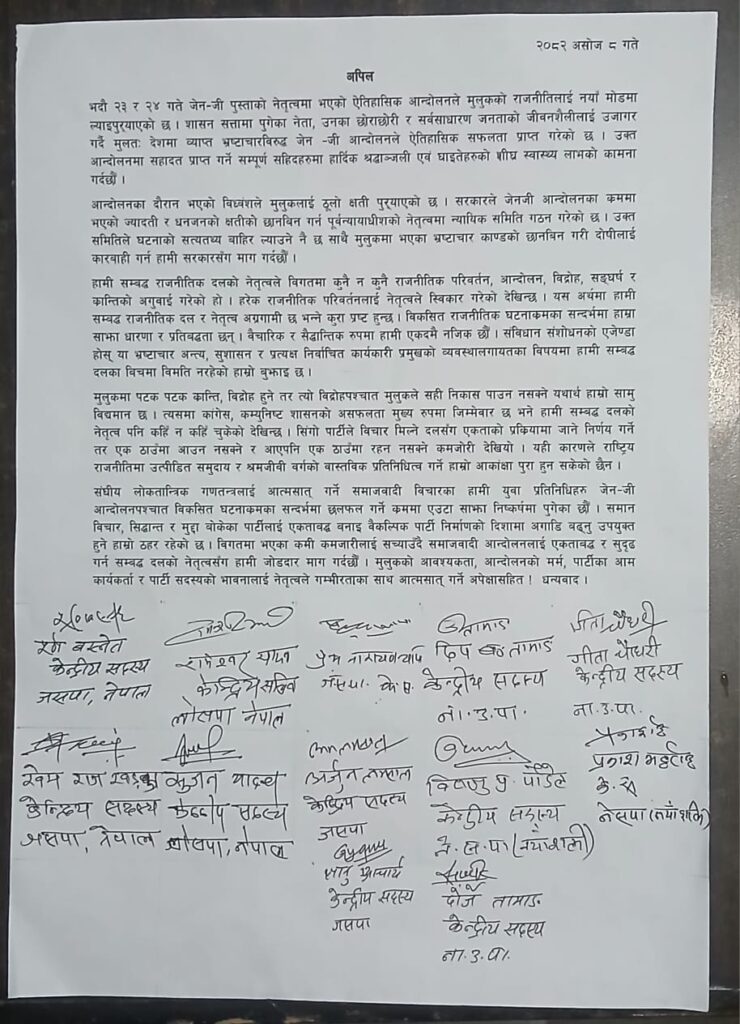 २०८२ असोज ८ गते
अपिल
भदौ २३ र २४ गते जेन-जी पुस्ताको नेतृत्वमा भएको ऐतिहासिक आन्दोलनले मुलुकको राजनीतिलाई नयाँ मोडमा
ल्याइपुर्‍याएको छ । शासन सत्तामा पुगेका नेता, उनका छोराछोरी र सर्वसाधारण जनताको जीवनशैलीलाई उजागर
गर्दै मुलतः देशमा व्याप्त भ्रष्टाचारविरुद्ध जेन -जी आन्दोलनले ऐतिहासिक सफलता प्राप्त गरेको छ । उक्त
आन्दोलनमा सहादत प्राप्त गर्ने सम्पूर्ण सहिदहरुमा हार्दिक श्रद्धाञ्जली एवं घाइतेहरुको शीघ्र स्वास्थ्य लाभको कामना
गर्दछौं ।
आन्दोलनका दौरान भएको विध्वंशले मुलुकलाई ठूलो क्षती पुर्‍याएको छ । सरकारले जेनजी आन्दोलनका क्रममा
भएको ज्यादती र धनजनको क्षतीको छानबिन गर्न पूर्वन्यायाधीशको नेतृत्वमा न्यायिक समिति गठन गरेको छ । उक्त
समितिले घटनाको सत्यतथ्य बाहिर ल्याउने नै छ साथै मुलुकमा भएका भ्रष्टाचार काण्डको छानबिन गरी दोषीलाई
कारबाही गर्न हामी सरकारसँग माग गर्दछौं ।
हामी सम्बद्ध राजनीतिक दलको नेतृत्वले विगतमा कुनै न कुनै राजनीतिक परिवर्तन, आन्दोलन, विद्रोह, सङ्घर्ष र
क्रान्तिको अगुवाई गरेको हो । हरेक राजनीतिक परिवर्तनलाई नेतृत्वले स्विकार गरेको देखिन्छ । यस अर्थमा हामी
सम्बद्ध राजनीतिक दल र नेतृत्व अग्रगामी छ भन्ने कुरा प्रष्ट हुन्छ । विकसित राजनीतिक घटनाक्रमका सन्दर्भमा हाम्रा
साझा धारणा र प्रतिबद्धता छन् । वैचारिक र सैद्धान्तिक रुपमा हामी एकदमै नजिक छौं । संविधान संशोधनको एजेण्डा
होस् या भ्रष्टाचार अन्त्य, सुशासन र प्रत्यक्ष निर्वाचित कार्यकारी प्रमुखको व्यवस्थालगायतका विषयमा हामी सम्बद्ध
दलका बिचमा विमति नरहेको हाम्रो बुझाइ छ ।
मुलुकमा पटक पटक क्रान्ति, विद्रोह हुने तर त्यो विद्रोहपश्चात मुलुकले सही निकास पाउन नसक्ने यथार्थ हाम्रो सामु
विद्यमान छ । त्यसमा कांग्रेस, कम्युनिष्ट शासनको असफलता मुख्य रुपमा जिम्मेवार छ भने हामी सम्बद्ध दलको
नेतृत्व पनि कहिँ न कहिँ चुकेको देखिन्छ । सिंगो पार्टीले विचार मिल्ने दलसंग एकताको प्रकियामा जाने निर्णय गर्ने
तर एक ठाउँमा आउन नसक्ने र आएपनि एक ठाउँमा रहन नसक्ने कमजोरी देखियो । यही कारणले राष्ट्रिय
राजनीतिमा उत्पीडित समुदाय र श्रमजीवी वर्गको वास्तविक प्रतिनिधित्व गर्ने हाम्रो आकांक्षा पुरा हुन सकेको छैन ।
संघीय लोकतान्त्रिक गणतन्त्रलाई आत्मसात् गर्ने समाजवादी विचारका हामी युवा प्रतिनिधिहरु जेन-जी
आन्दोलनपश्चात विकसित घटनाक्रमका सन्दर्भमा छलफल गर्ने क्रममा एउटा साझा निष्कर्षमा पुगेका छौं । समान
विचार, सिद्धान्त र मुद्दा बोकेका पार्टीलाई एकतावद्ध बनाइ बैकल्पिक पार्टी निर्माणको दिशामा अगाडि बढ्नु उपयुक्त
हुने हाम्रो ठहर रहेको छ । विगतमा भएका कमी कमजारीलाई सच्याउँदै समाजवादी आन्दोलनलाई एकतावद्ध र सुदृढ
गर्न सम्बद्ध दलको नेतृत्वसंग हामी जोडदार माग गर्दछौं । मुलुकको आवश्यकता, आन्दोलनको मर्म, पार्टीका आम
कार्यकर्ता र पार्टी सदस्यको भावनालाई नेतृत्वले गम्भीरताका साथ आत्मसात् गर्ने अपेक्षासहित ! धन्यवाद ।
बस्नेत
केन्द्रीय सदस्य
जसपा, नेपाल
लोसपा नेपाल
प्रेम नारायण
जसपा. के.स.
तामाङ
केन्द्रीय सदस्य
ना.उ.पा.
गीता चौधरी
गीता चौधरी
केन्द्रीय सदस्य
ना.उ.पा.
खेम राज
केन्द्रिय सदस्य
जसपा, नेपाल
यादव
केन्द्रीय सदस्य
लोसपा, नेपाल
अर्जुन
केन्द्रिय सदस्य
जसपा
आचार्य
केन्द्रीय सदस्य
जसपा
विष्णु प्र. पौडेल
केन्द्रीय सदस्य
ने.स.पा (नयाँशक्ति)
दोर्जे तामाङ
केन्द्रीय सदस्य
ना.उ.पा.
प्रकाश भट्टराई
के.स.
नेसपा (नयाँशक्ति)